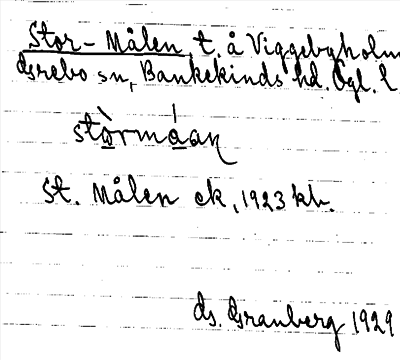 Stor-Målen, t. å Viggebyholm
Grebo sn, Bankekinds hd. Ögl. l
stòrmáan
St. Målen ek, 1923 kb.
Gs. Granberg 1929